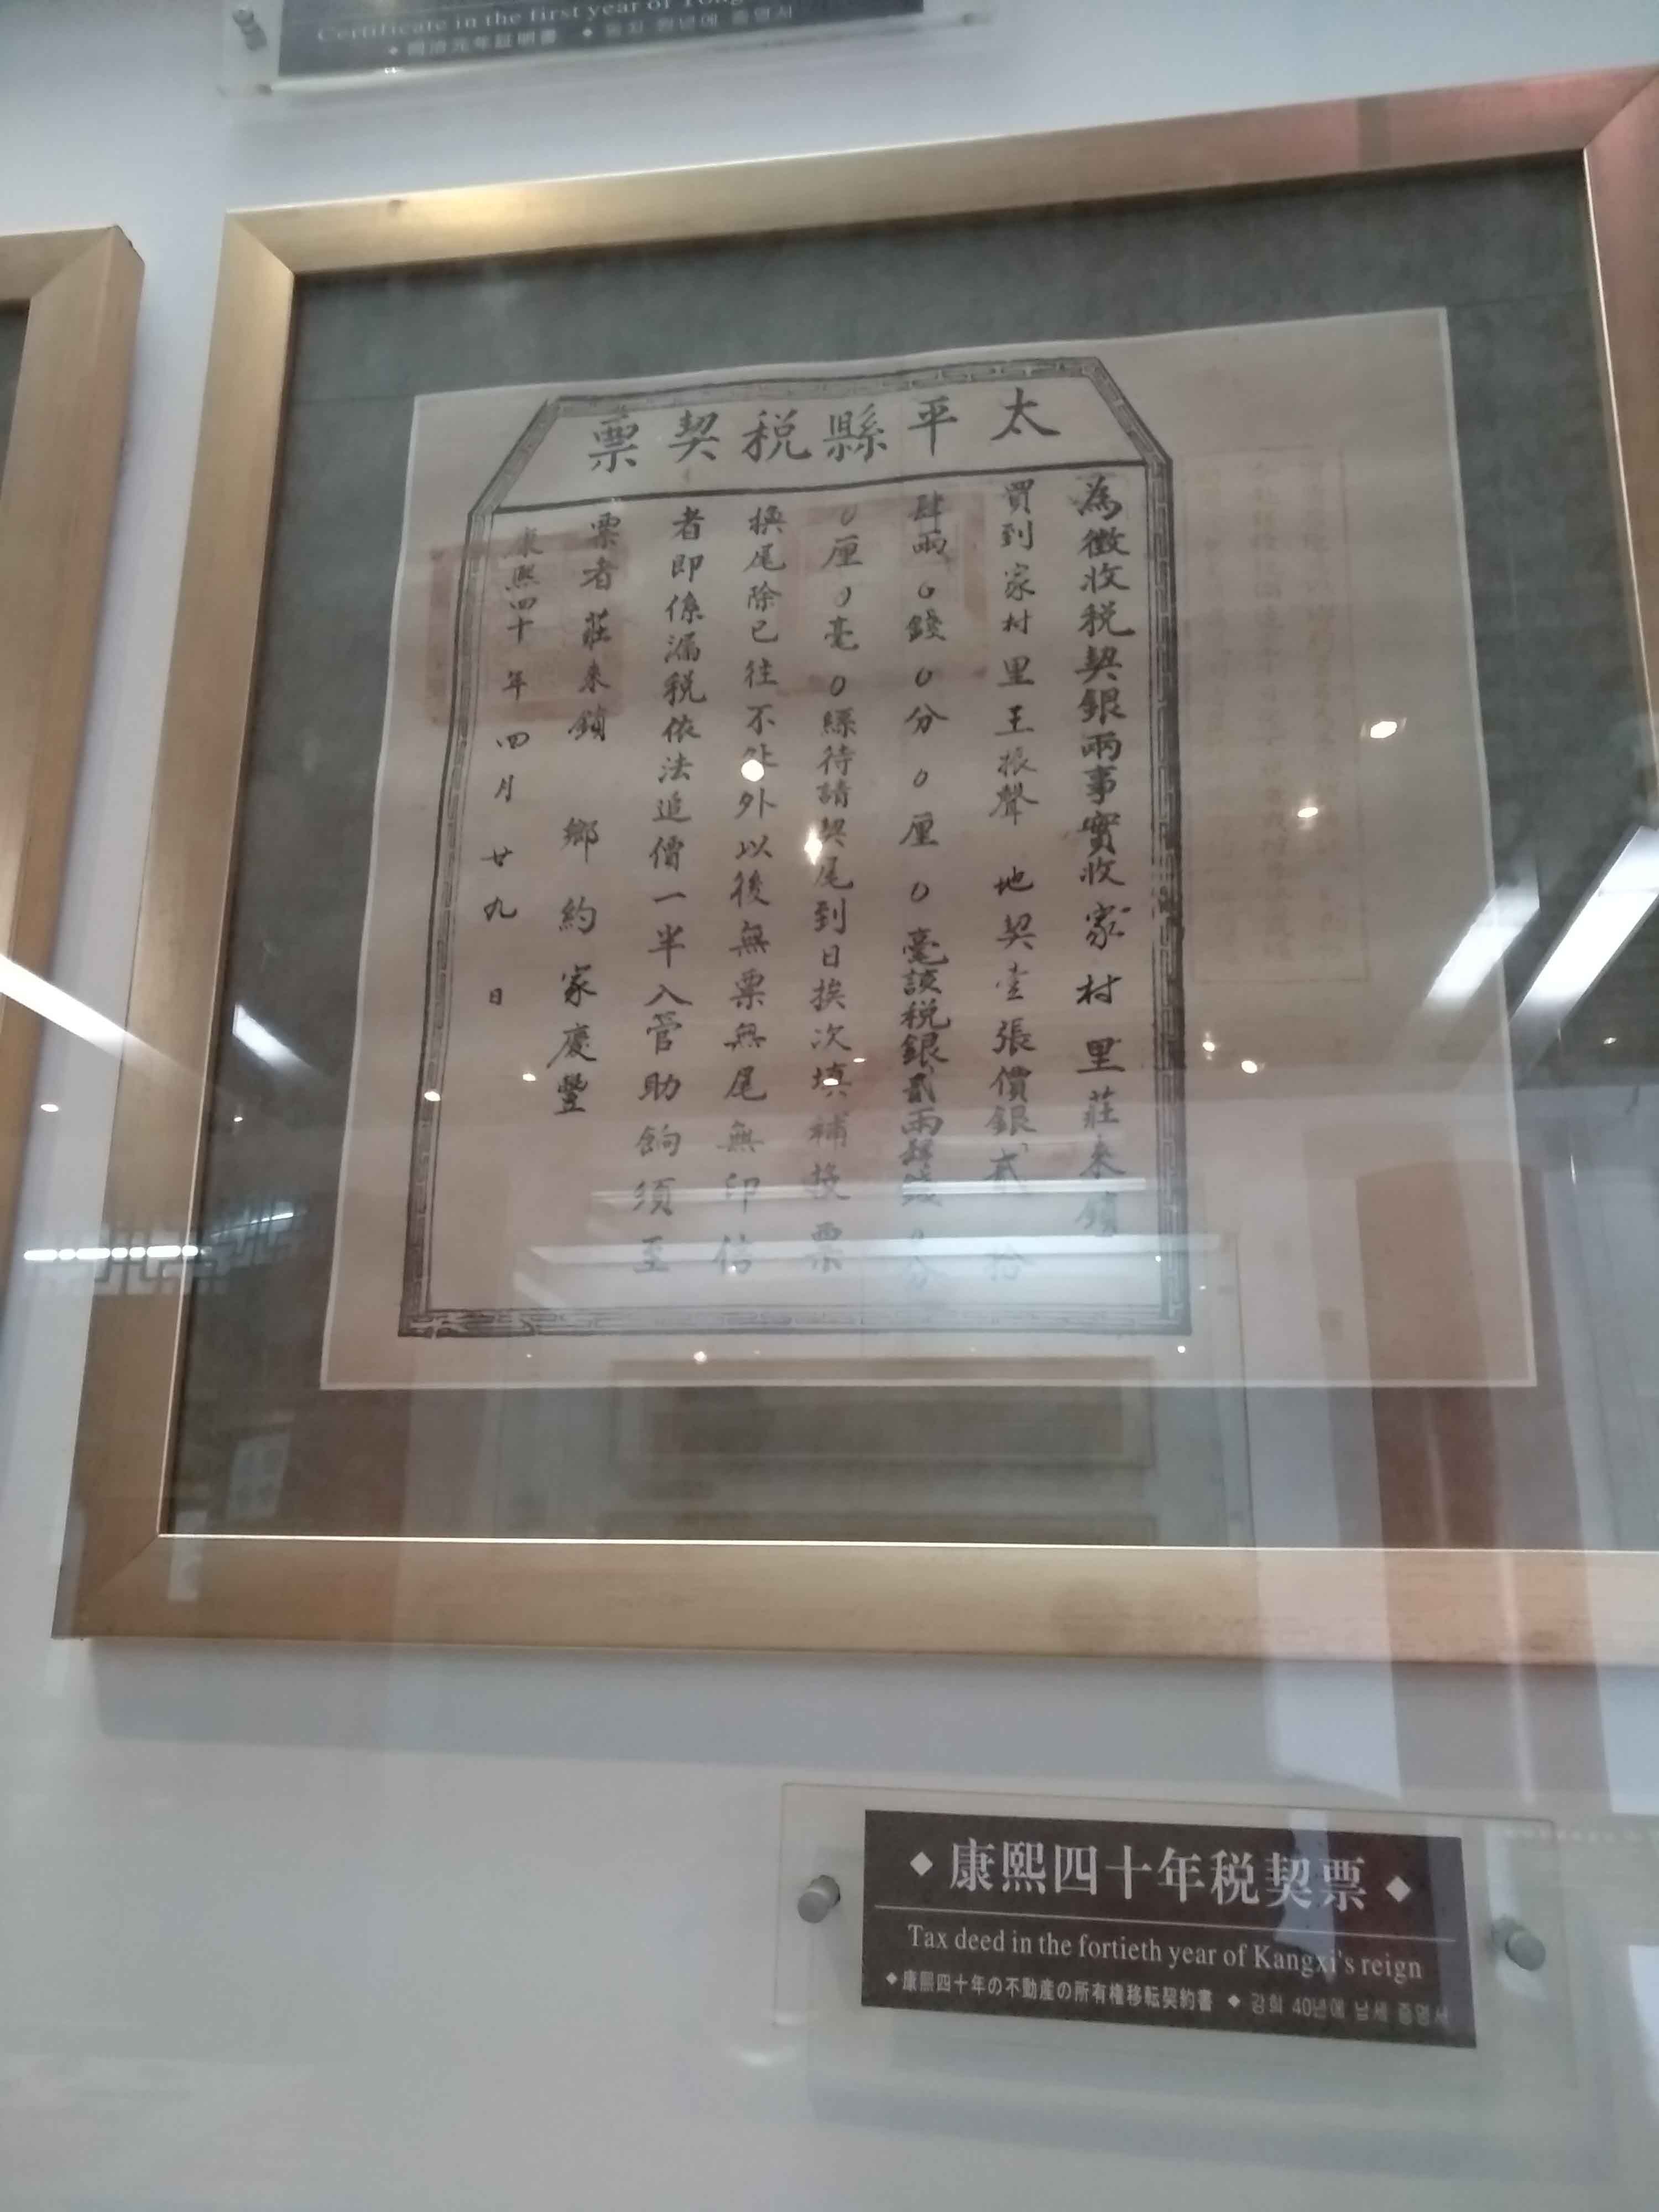 Certificate in the first year of
太平縣税契票
為徵收税契銀兩事實收家村里莊来鎖
買到家村里王振聲 地契壹張價銀貳拾
肆兩0錢0分0厘0毫該税銀貳兩肆錢0分
0厘0毫0縣待請契尾到日挨次填補換票
換尾除已往不外以後無票無尾無印信
者即係漏税依法追價一半入管助餉須至
票者莊来鎖 鄉約家慶豐
康熙四十年四月廿九日
◆康熙四十年税契票◆
Tax deed in the fortieth year of Kangxi's reign
◆康熙四十年の不動産の所有権移転契約書 ◆ 강희 40년에 납세 증명서